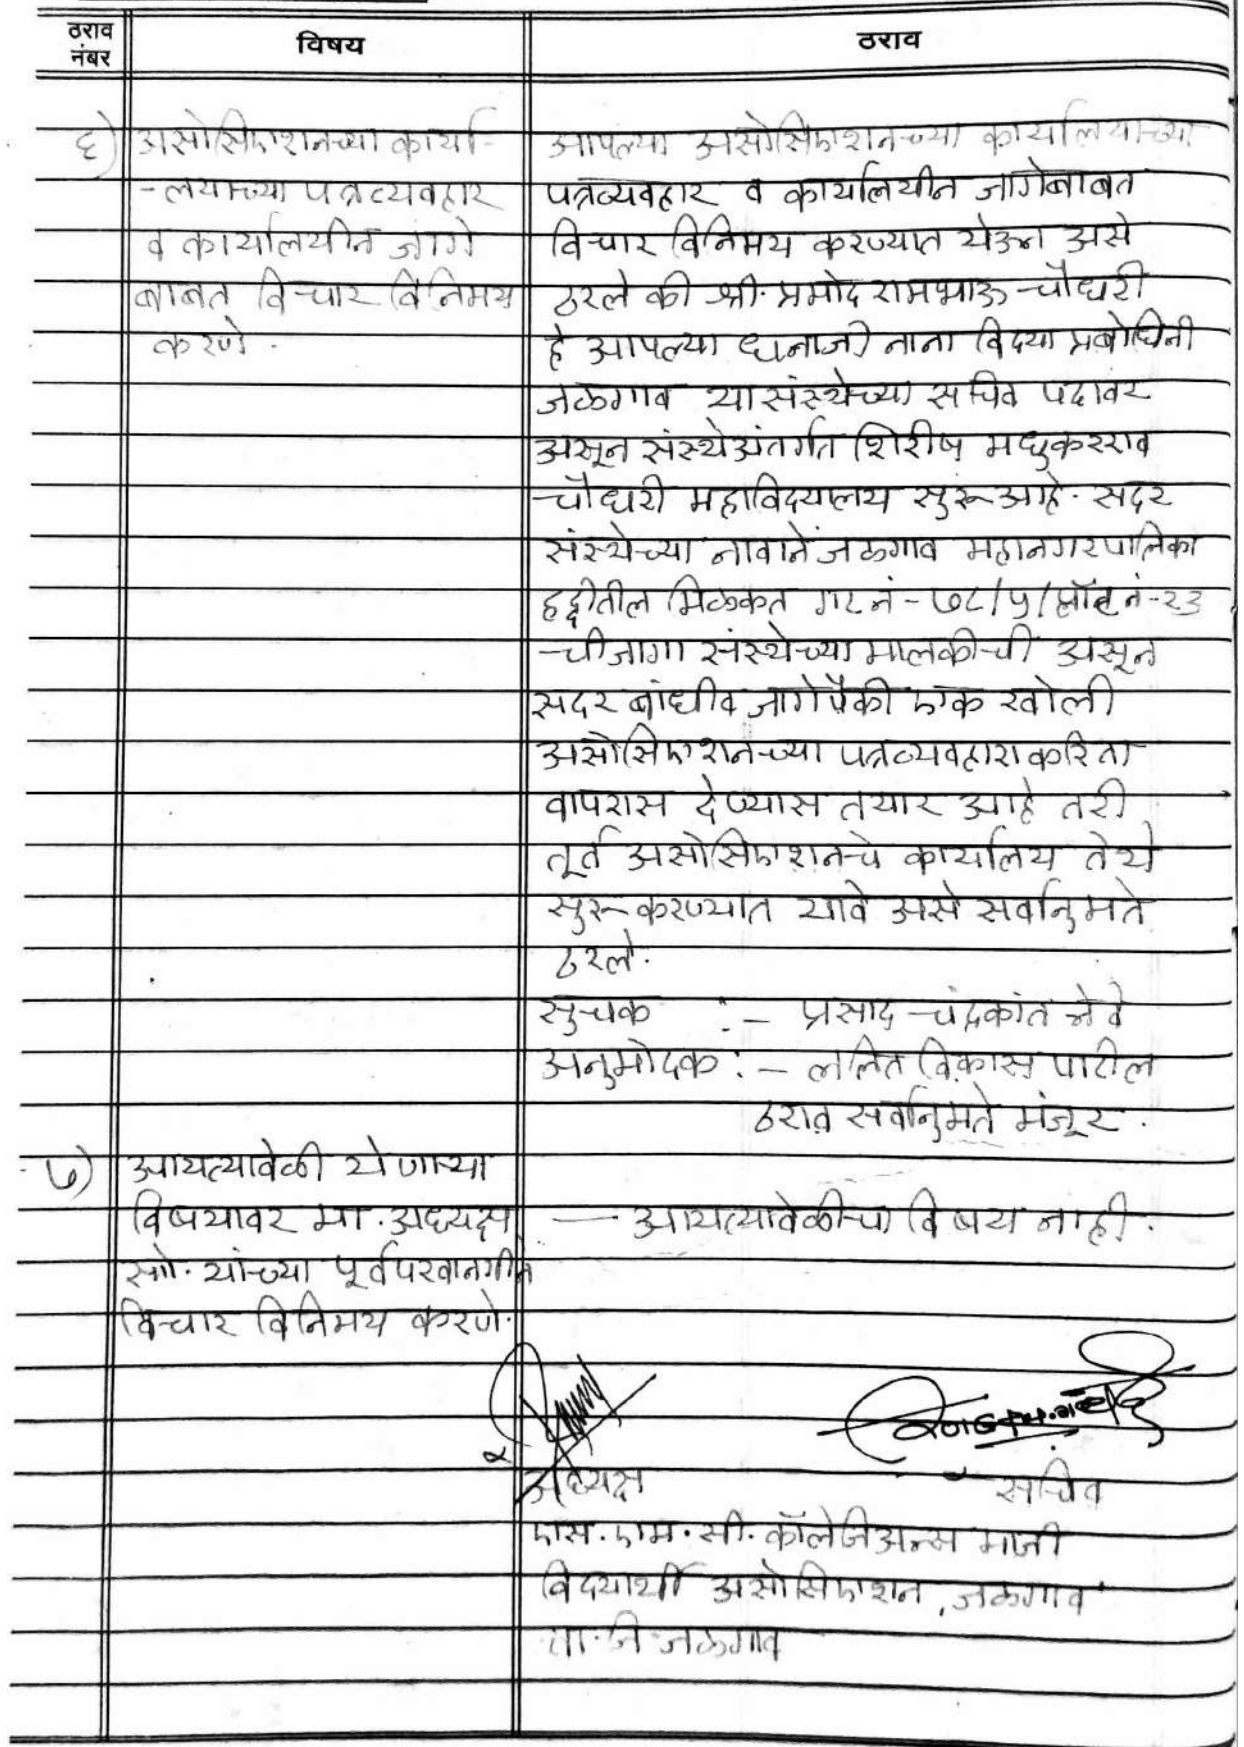 ठराव नंबर विषय ठराव
६) असोसिएशनच्या कार्या- आपल्या असोसिएशनच्या कार्यालयाच्या
-लयाच्या पत्रव्यवहार पत्रव्यवहार व कार्यालयीन जागेबाबत
व कार्यालयीन जागे विचार विनिमय करण्यात येऊन असे
बाबत विचार विनिमय ठरले की श्री. प्रमोद रामभाऊ चौधरी
करणे. हे आपल्या धनाजी नाना विद्या प्रबोधिनी
जळगाव या संस्थेच्या सचिव पदावर
असून संस्थेअंतर्गत शिरीष मधुकरराव
चौधरी महाविद्यालय सुरू आहे. सदर
संस्थेच्या नावाने जळगाव महानगरपालिका
हद्दीतील मिळकत गट नं - ७८/५/प्लॉट नं - २३
ची जागा संस्थेच्या मालकीची असून
सदर बांधीव जागेपैकी एक खोली
असोसिएशनच्या पत्रव्यवहाराकरिता
वापरास देण्यास तयार आहे तरी
तूर्त असोसिएशनचे कार्यालय तेथे
सुरू करण्यात यावे असे सर्वानुमते
ठरले.
सुचक :- प्रसाद चंद्रकांत नेवे
अनुमोदक :- ललित विकास पाटील
ठराव सर्वानुमते मंजूर.
७) आयत्यावेळी येणाऱ्या
विषयावर मा. अध्यक्ष — आयत्यावेळीचा विषय नाही.
सो. यांच्या पूर्वपरवानगीने
विचार विनिमय करणे.
अध्यक्ष सचिव
एस. एम. सी. कॉलेजिअन्स माजी
विद्यार्थी असोसिएशन, जळगाव
ता. जि. जळगाव